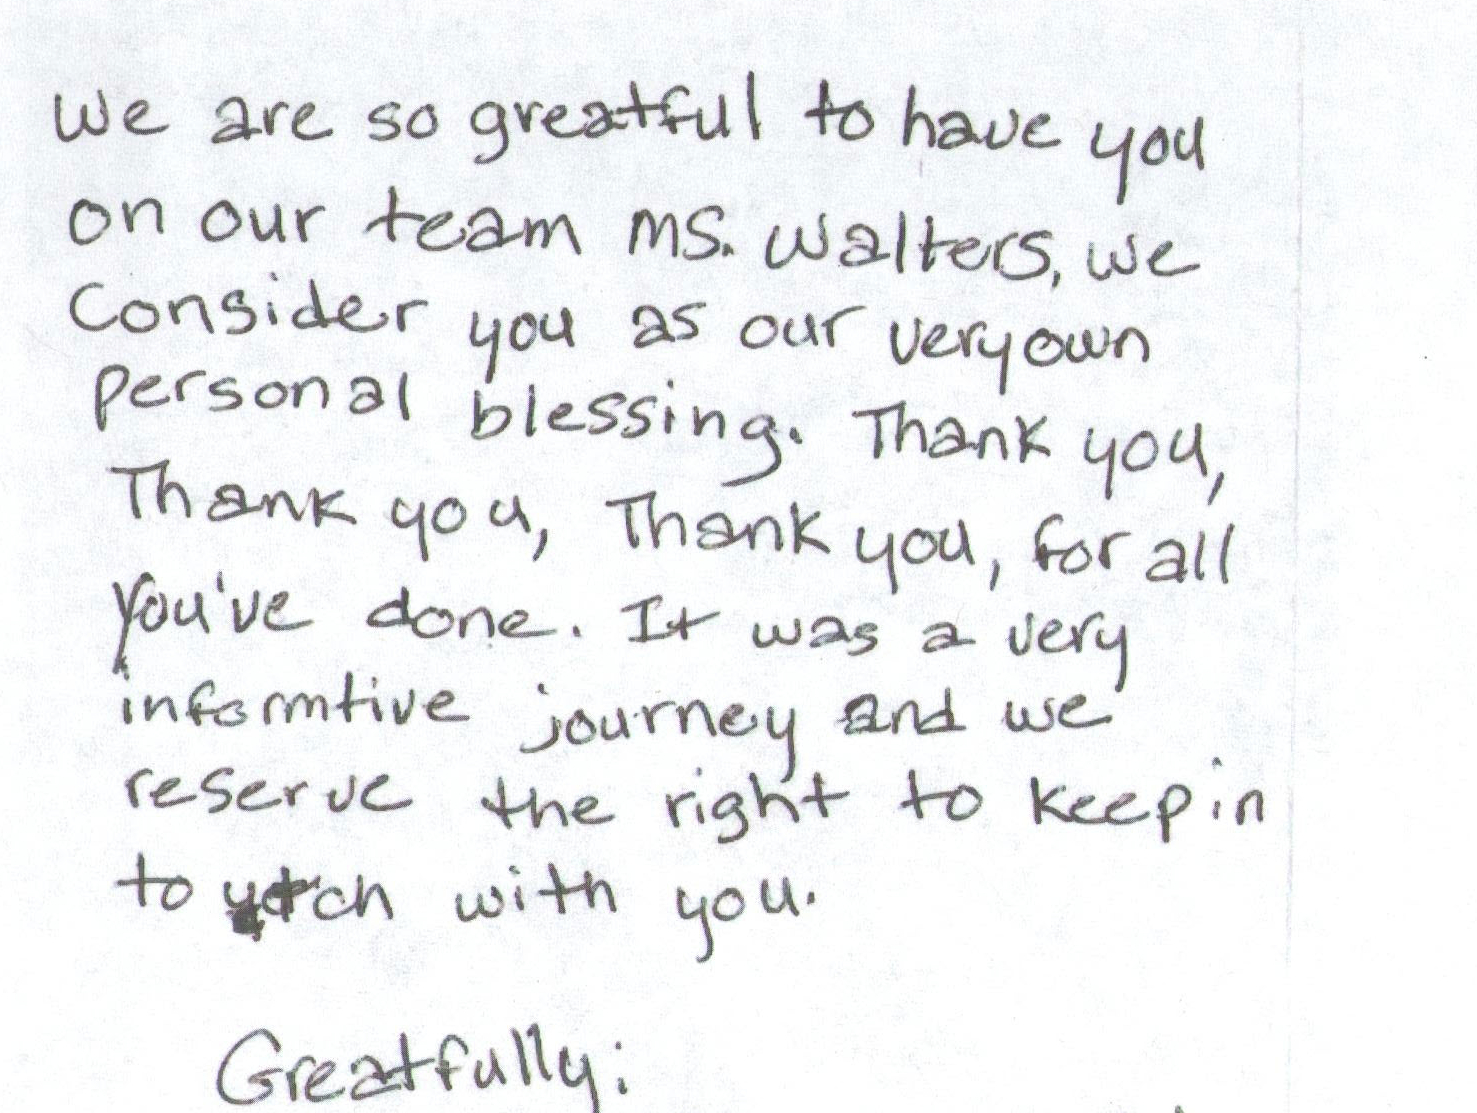 We are so greatful to have you
on our team Ms. Walters, we
Consider you as our very own
personal blessing. Thank you,
Thank you, Thank you, for all
you've done. It was a very
informtive journey and we
reserve the right to keep in
to with you.
Greatfully: